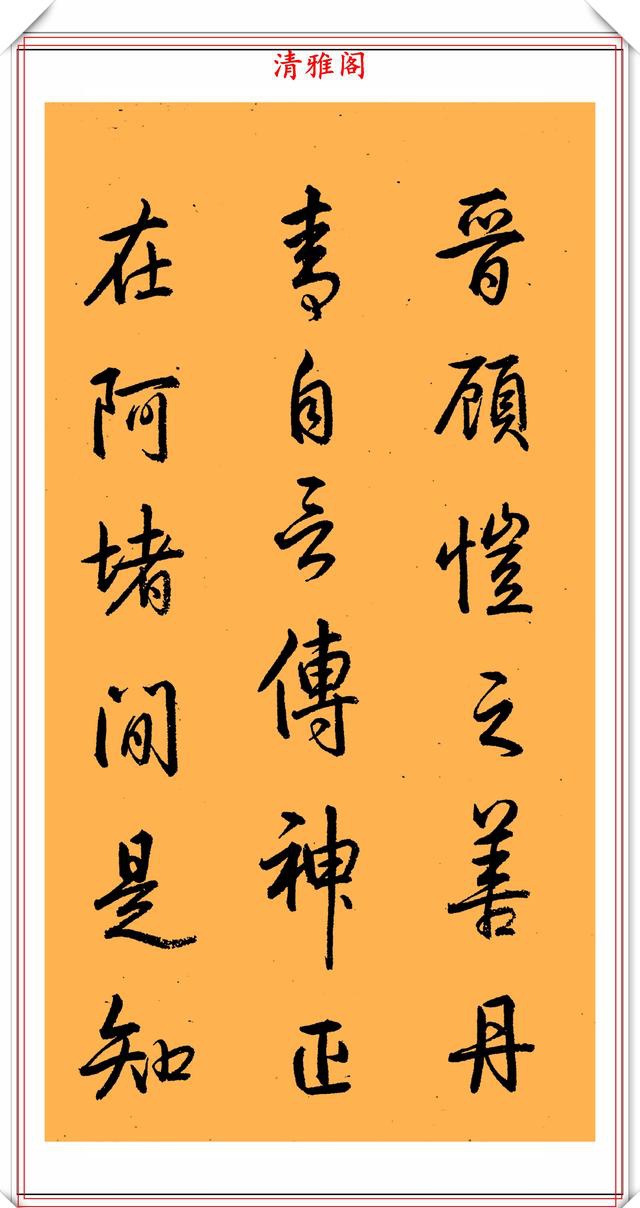 清雅阁
晋顧愷之善丹
青自云傳神正
在阿堵間是知